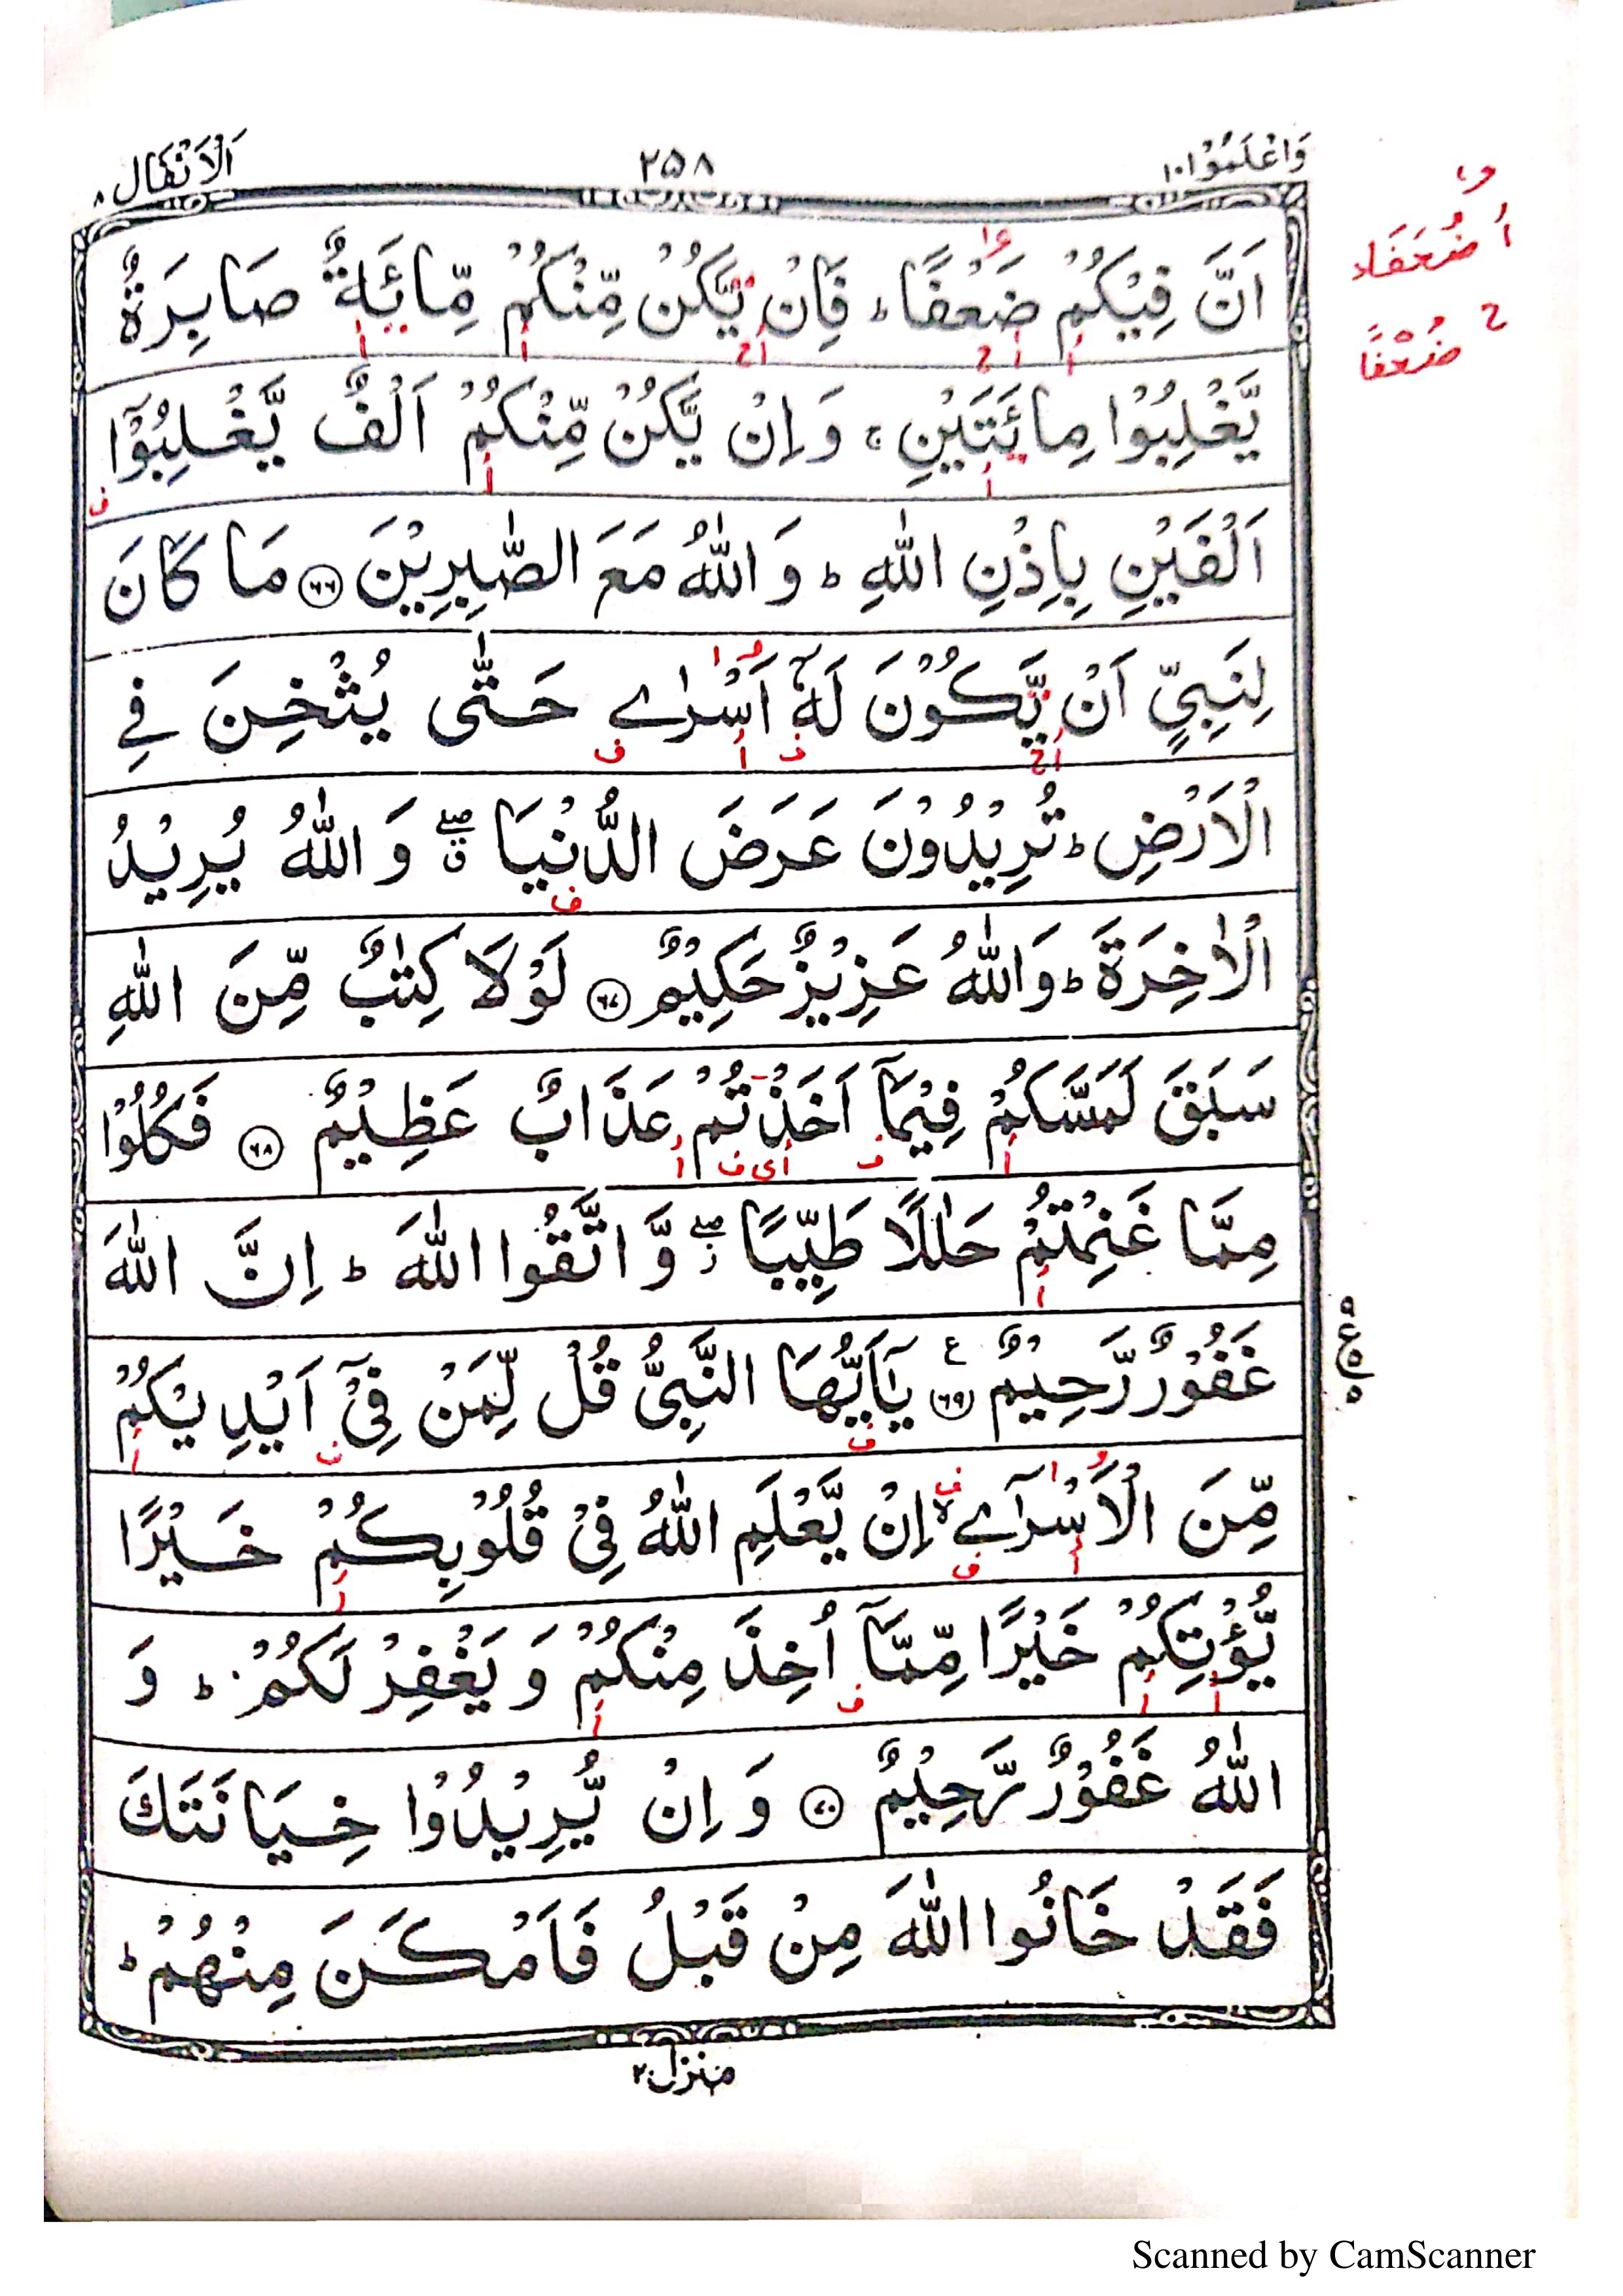 وَاعْلَمُوْا ١٠ ٢٥٨ اَلْاَنْفَال ٨
اَنَّ فِيْكُمْ ضَعْفًا ؕ فَاِنْ يَّكُنْ مِّنْكُمْ مِّائَةٌ صَابِرَةٌ
أ ضُعَفَاءَ
ح ضُعْفًا
يَّغْلِبُوْا مِائَتَيْنِ ۚ وَاِنْ يَّكُنْ مِّنْكُمْ اَلْفٌ يَّغْلِبُوْٓا
اَلْفَيْنِ بِاِذْنِ اللّٰهِ ؕ وَاللّٰهُ مَعَ الصّٰبِرِيْنَ ٦٦ مَا كَانَ
لِنَبِيٍّ اَنْ يَّكُوْنَ لَهٗٓ اَسْرٰے حَتّٰى يُثْخِنَ فِے
الْاَرْضِ ؕ تُرِيْدُوْنَ عَرَضَ الدُّنْيَا ۖ ق وَاللّٰهُ يُرِيْدُ
الْاٰخِرَةَ ؕ وَاللّٰهُ عَزِيْزٌ حَكِيْمٌ ٦٧ لَوْلَا كِتٰبٌ مِّنَ اللّٰهِ
سَبَقَ لَمَسَّكُمْ فِيْمَآ اَخَذْتُمْ عَذَابٌ عَظِيْمٌ ٦٨ فَكُلُوْا
مِمَّا غَنِمْتُمْ حَلٰلًا طَيِّبًا ۖ ز وَّاتَّقُوا اللّٰهَ ؕ اِنَّ اللّٰهَ
غَفُوْرٌ رَّحِيْمٌ ٦٩ ع يٰٓاَيُّهَا النَّبِيُّ قُلْ لِّمَنْ فِيْٓ اَيْدِيْكُمْ
مِّنَ الْاَسْرٰٓے ۙ اِنْ يَّعْلَمِ اللّٰهُ فِيْ قُلُوْبِكُمْ خَيْرًا
يُّؤْتِكُمْ خَيْرًا مِّمَّآ اُخِذَ مِنْكُمْ وَيَغْفِرْ لَكُمْ ؕ وَ
اللّٰهُ غَفُوْرٌ رَّحِيْمٌ ٧٠ وَاِنْ يُّرِيْدُوْا خِيَانَتَكَ
فَقَدْ خَانُوا اللّٰهَ مِنْ قَبْلُ فَاَمْكَنَ مِنْهُمْ ؕ
منزل ٢
Scanned by CamScanner